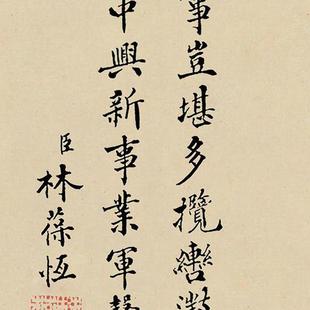 事豈堪多攬轡
中興新事業軍
臣林葆恆